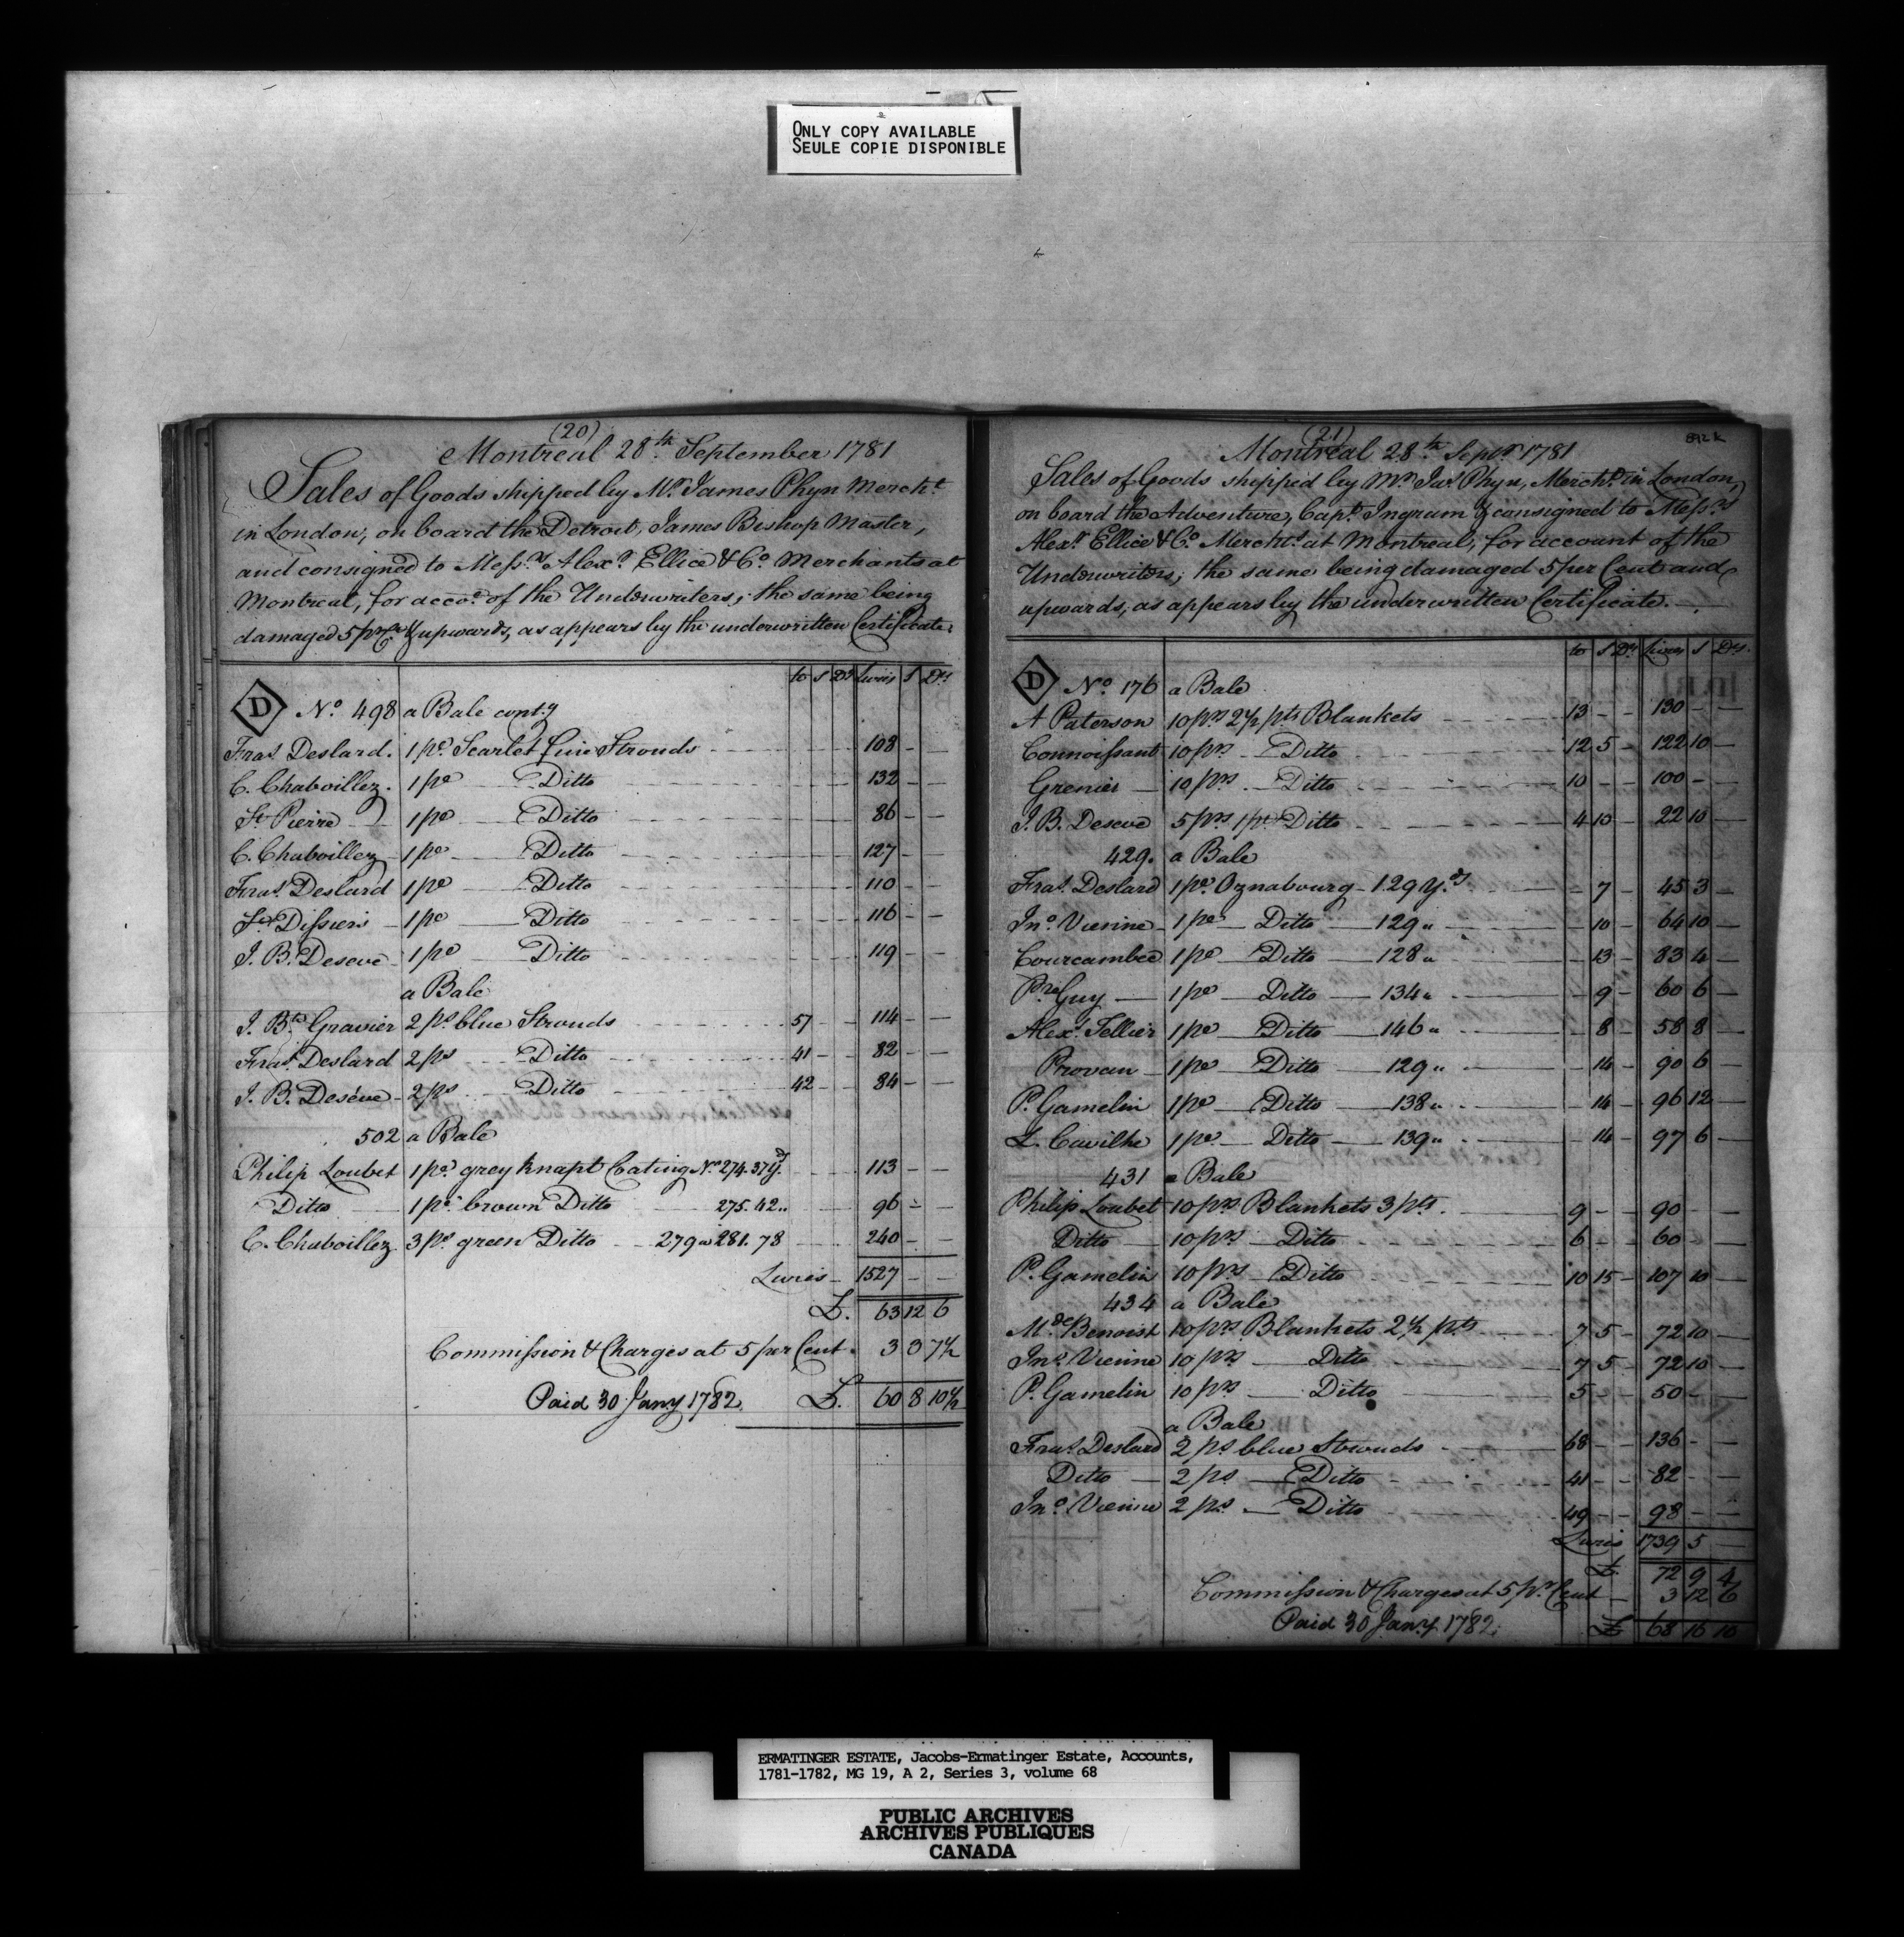 ONLY COPY AVAILABLE
SEULE COPIE DISPONIBLE
(20)
Montreal 28th September 1781
Sales of Goods shipped by Mr James Phyn Mercht
in London, on board the Detroit, James Bishop Master,
and consigned to Messrs Alexr Ellice & Co Merchants at
Montreal, for accot of the Underwriters; the same being
damaged 5 pr Ct & upwards, as appears by the underwritten Certificate.
to S Ds Livres S Ds
D No 498 a Bale conty
Fras Deslard. 1 pe Scarlet fine Strouds 108 - -
C. Chaboillez. 1 pe Ditto 132 - -
St Pierre 1 pe Ditto 86 - -
C. Chaboillez 1 pe Ditto 127 - -
Fras Deslard 1 pe Ditto 110 - -
St Dissieri 1 pe Ditto 116 - -
J. B. Deseve 1 pe Ditto 119 - -
a Bale
J. Bte Gravier 2 ps blue Strouds 57 - - 114 - -
Fras Deslard 2 ps Ditto 41 - - 82 - -
J. B. Deséve 2 ps Ditto 42 - - 84 - -
502 a Bale
Philip Loubet 1 pe grey knapt Coating No 274. 37 yd 113 - -
Ditto 1 pe brown Ditto 275. 42 " 96 - -
C. Chaboillez 3 ps green Ditto 279 a 281. 78 240 - -
Livres 1527 - -
£. 63 12 6
Commission & Charges at 5 per Cent. 3 3 7½
Paid 30 Jany 1782 £. 60 8 10½
(21)
Montreal 28th Sepr 1781
Sales of Goods shipped by Mr Jas Phyn, Mercht in London,
on board the Adventure, Capt Ingram & consigned to Messrs
Alexr Ellice & Co Merchts at Montreal, for account of the
Underwriters; the same being damaged 5 per Cent and
upwards, as appears by the underwritten Certificate.
to S Ds Livres S Ds
D No 176 a Bale
A Paterson 10 prs 2½ pts Blankets 13 - - 130 - -
Connoissant 10 prs Ditto 12 5 - 122 10 -
Grenier 10 prs Ditto 10 - - 100 - -
J. B. Deseve 5 prs 1 pt Ditto 4 10 - 22 10 -
429. a Bale
Fras Deslard 1 pe Oznabourg 129 Yds - 7 - 45 3 -
Jno Vienne 1 pe Ditto 129 " - 10 - 64 10 -
Courcambec 1 pe Ditto 128 " - 13 - 83 4 -
Pre Guy 1 pe Ditto 134 " - 9 - 60 6 -
Alexr Tellier 1 pe Ditto 146 " - 8 - 58 8 -
Provan 1 pe Ditto 129 " - 14 - 90 6 -
P. Gamelin 1 pe Ditto 138 " - 14 - 96 12 -
L. Cavilhe 1 pe Ditto 139 " - 14 - 97 6 -
431 a Bale
Philip Loubet 10 prs Blankets 3 pts. 9 - - 90 - -
Ditto 10 prs Ditto 6 - - 60 - -
P. Gamelin 10 prs Ditto 10 15 - 107 10 -
434 a Bale
Mde Benoist 10 prs Blankets 2½ pts 7 5 - 72 10 -
Jno Vienne 10 prs Ditto 7 5 - 72 10 -
P. Gamelin 10 prs Ditto 5 - - 50 - -
a Bale
Fras Deslard 2 ps blue Strouds 68 - - 136 - -
Ditto 2 ps Ditto 41 - - 82 - -
Jno Vienne 2 ps Ditto 49 - - 98 - -
Livres 1739 5 -
£. 72 9 4
Commission & Charges at 5 pr Cent 3 12 6
Paid 30 Jany 1782. £ 68 16 10
ERMATINGER ESTATE, Jacobs-Ermatinger Estate, Accounts,
1781-1782, MG 19, A 2, Series 3, volume 68
PUBLIC ARCHIVES
ARCHIVES PUBLIQUES
CANADA